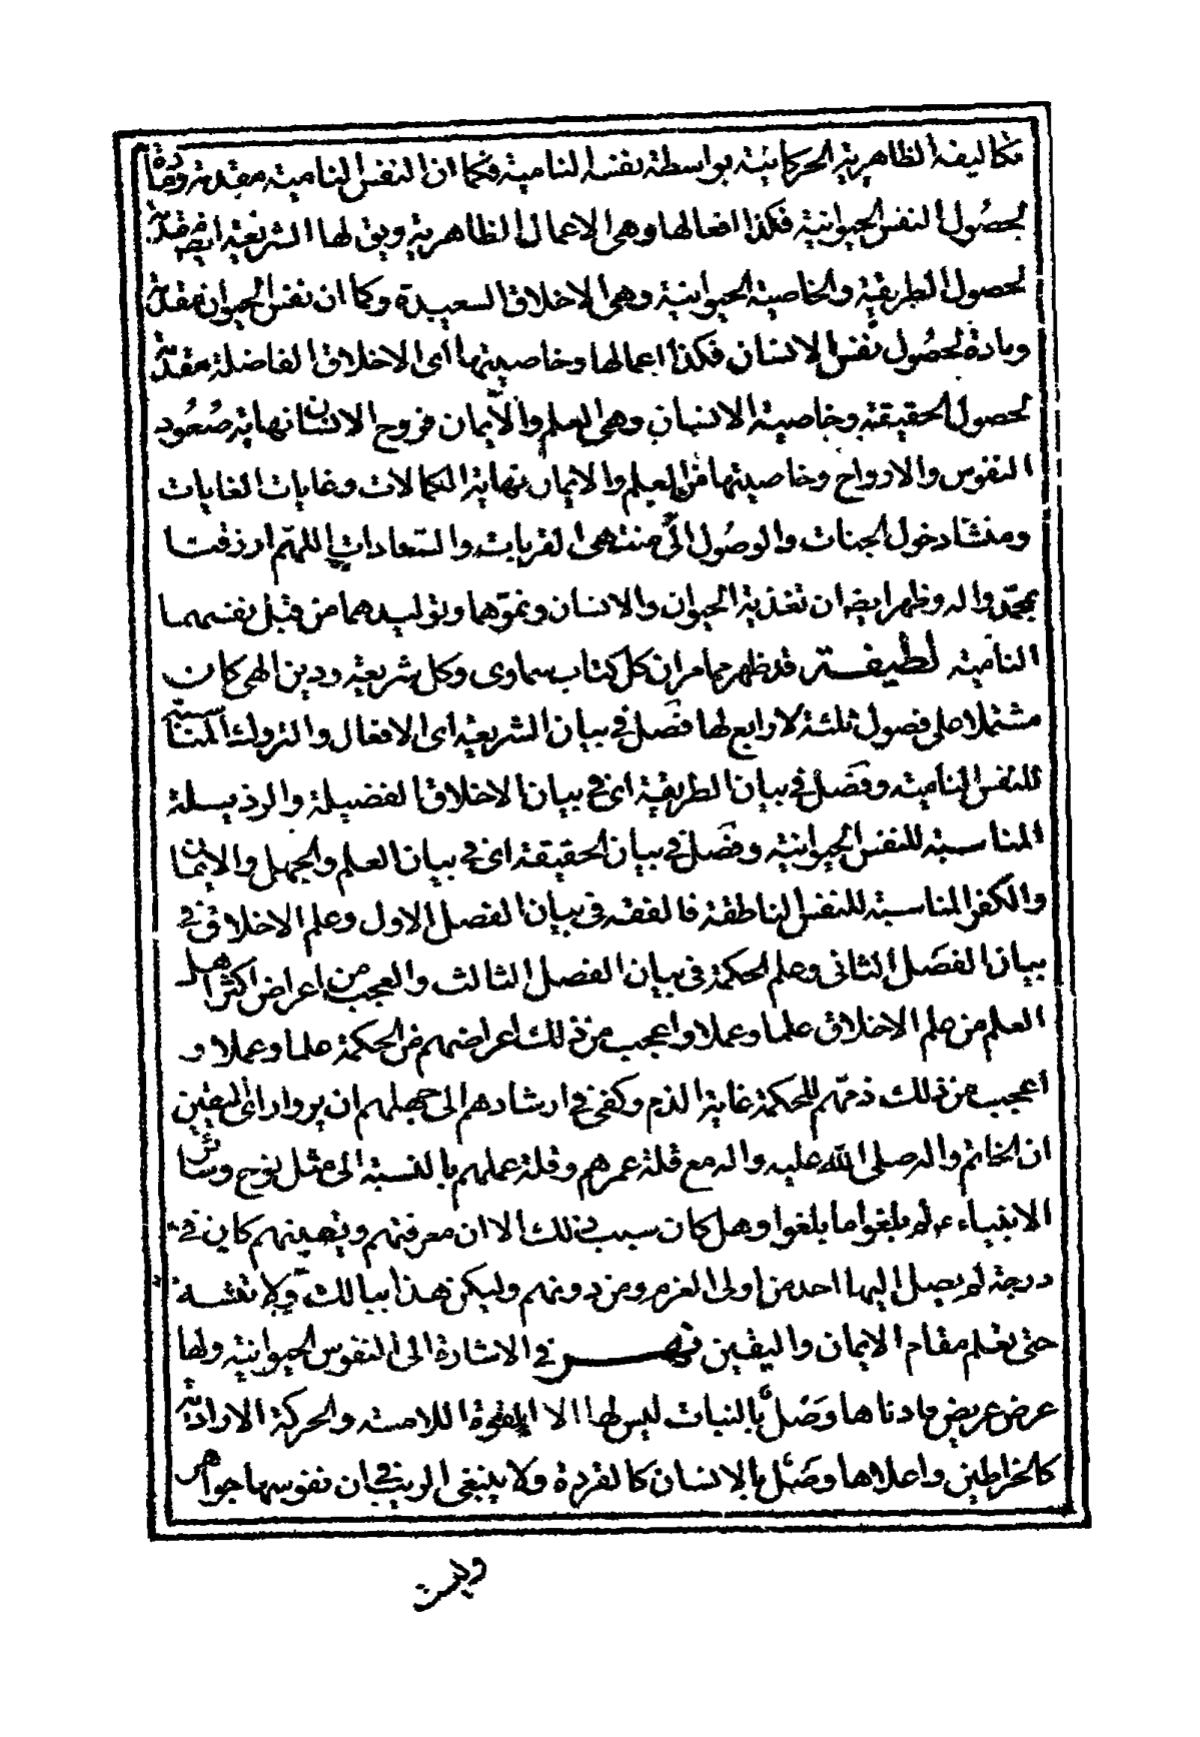 تكاليفه الظاهرية الحركاتية بواسطة نفسه النامية فكما ان النفس النامية مقدمة ومادة
لحصول النفس الحيوانية فكذا افعالها وهى الاعمال الظاهرية ويق لها الشريعة ايضه مقدمة
لحصول الطريقية والخاصية الحيوانية وهى الاخلاق السعيدة وكما ان نفس الحيوان مقدمة
ومادة لحصول نفس الانسان فكذا اعمالها وخاصيتها اى الاخلاق الفاضلة مقدمة
لحصول الحقيقة وخاصية الانسان وهى العلم والايمان فروح الانسان نهاية صعود
النفوس والارواح وخاصيتها من العلم والايمان نهاية الكمالات وغايات الغايات
ومنشا دخول الجنات والوصول الى منتهى القربات والسعادات اللهم ارزقنا
بمحمد واله وظهر ايضه ان تغذية الحيوان والانسان ونموهما وتوليدهما من قبل نفسهما
النامية لطيفة قد ظهر مما مر ان كل كتاب سماوى وكل شريعة ودين الهى كان
مشتملا على فصول ثلثة لا رابع لها فصل فى بيان الشريعة اى الافعال والتروك المناسبة
للنفس النامية وفصل فى بيان الطريقة اى فى بيان الاخلاق الفضيلة والرذيلة
المناسبة للنفس الحيوانية وفصل فى بيان الحقيقة اى فى بيان العلم والجهل والايمان
والكفر المناسبة للنفس الناطقة فالفقه فى بيان الفصل الاول وعلم الاخلاق فى
بيان الفصل الثانى وعلم الحكمة فى بيان الفصل الثالث والعجب من اعراض اكثر اهل
العلم من علم الاخلاق علما وعملا واعجب من ذلك اعراضهم من الحكمة علما وعملا و
اعجب من ذلك ذمهم للحكمة غاية الذم وكفى فى ارشادهم الى جهلهم ان يروا براى اليقين
ان الخاتم واله صلى الله عليه واله مع قلة عمرهم وقلة عملهم بالنسبة الى مثل نوح وسائر
الانبياء ع لم بلغوا ما بلغوا وهل كان سبب ذلك الا ان معرفتهم ويقينهم كاين فى
درجة لم يصل اليها احد من اولى العزم ومن دونهم وليكن هذا ببالك ولا تنسه
حتى تعلم مقام الايمان واليقين نهر فى الاشارة الى النفوس الحيوانية ولها
عرض عريض فادناها وصل بالنبات ليس لها الا القوة اللامسة والحركة الارادية
كالخراطين واعلاها وصل بالانسان كالقردة ولا ينبغى الريب فى ان نفوسها جواهر
وليست